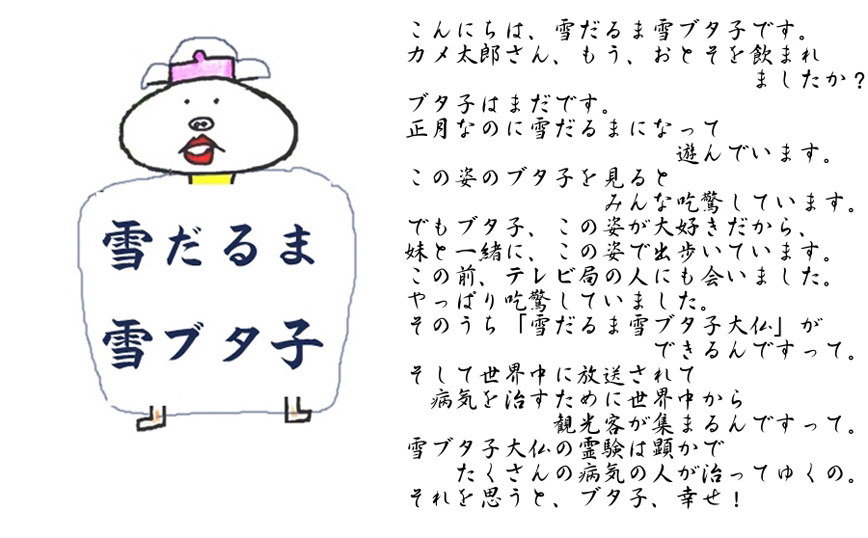 雪だるま
雪ブタ子
こんにちは、雪だるま雪ブタ子です。
カメ太郎さん、もう、おとそを飲まれ
ましたか?
ブタ子はまだです。
正月なのに雪だるまになって
遊んでいます。
この姿のブタ子を見ると
みんな吃驚しています。
でもブタ子、この姿が大好きだから、
妹と一緒に、この姿で出歩いています。
この前、テレビ局の人にも会いました。
やっぱり吃驚していました。
そのうち「雪だるま雪ブタ子大仏」が
できるんですって。
そして世界中に放送されて
病気を治すために世界中から
観光客が集まるんですって。
雪ブタ子大仏の霊験は顕かで
たくさんの病気の人が治ってゆくの。
それを思うと、ブタ子、幸せ!